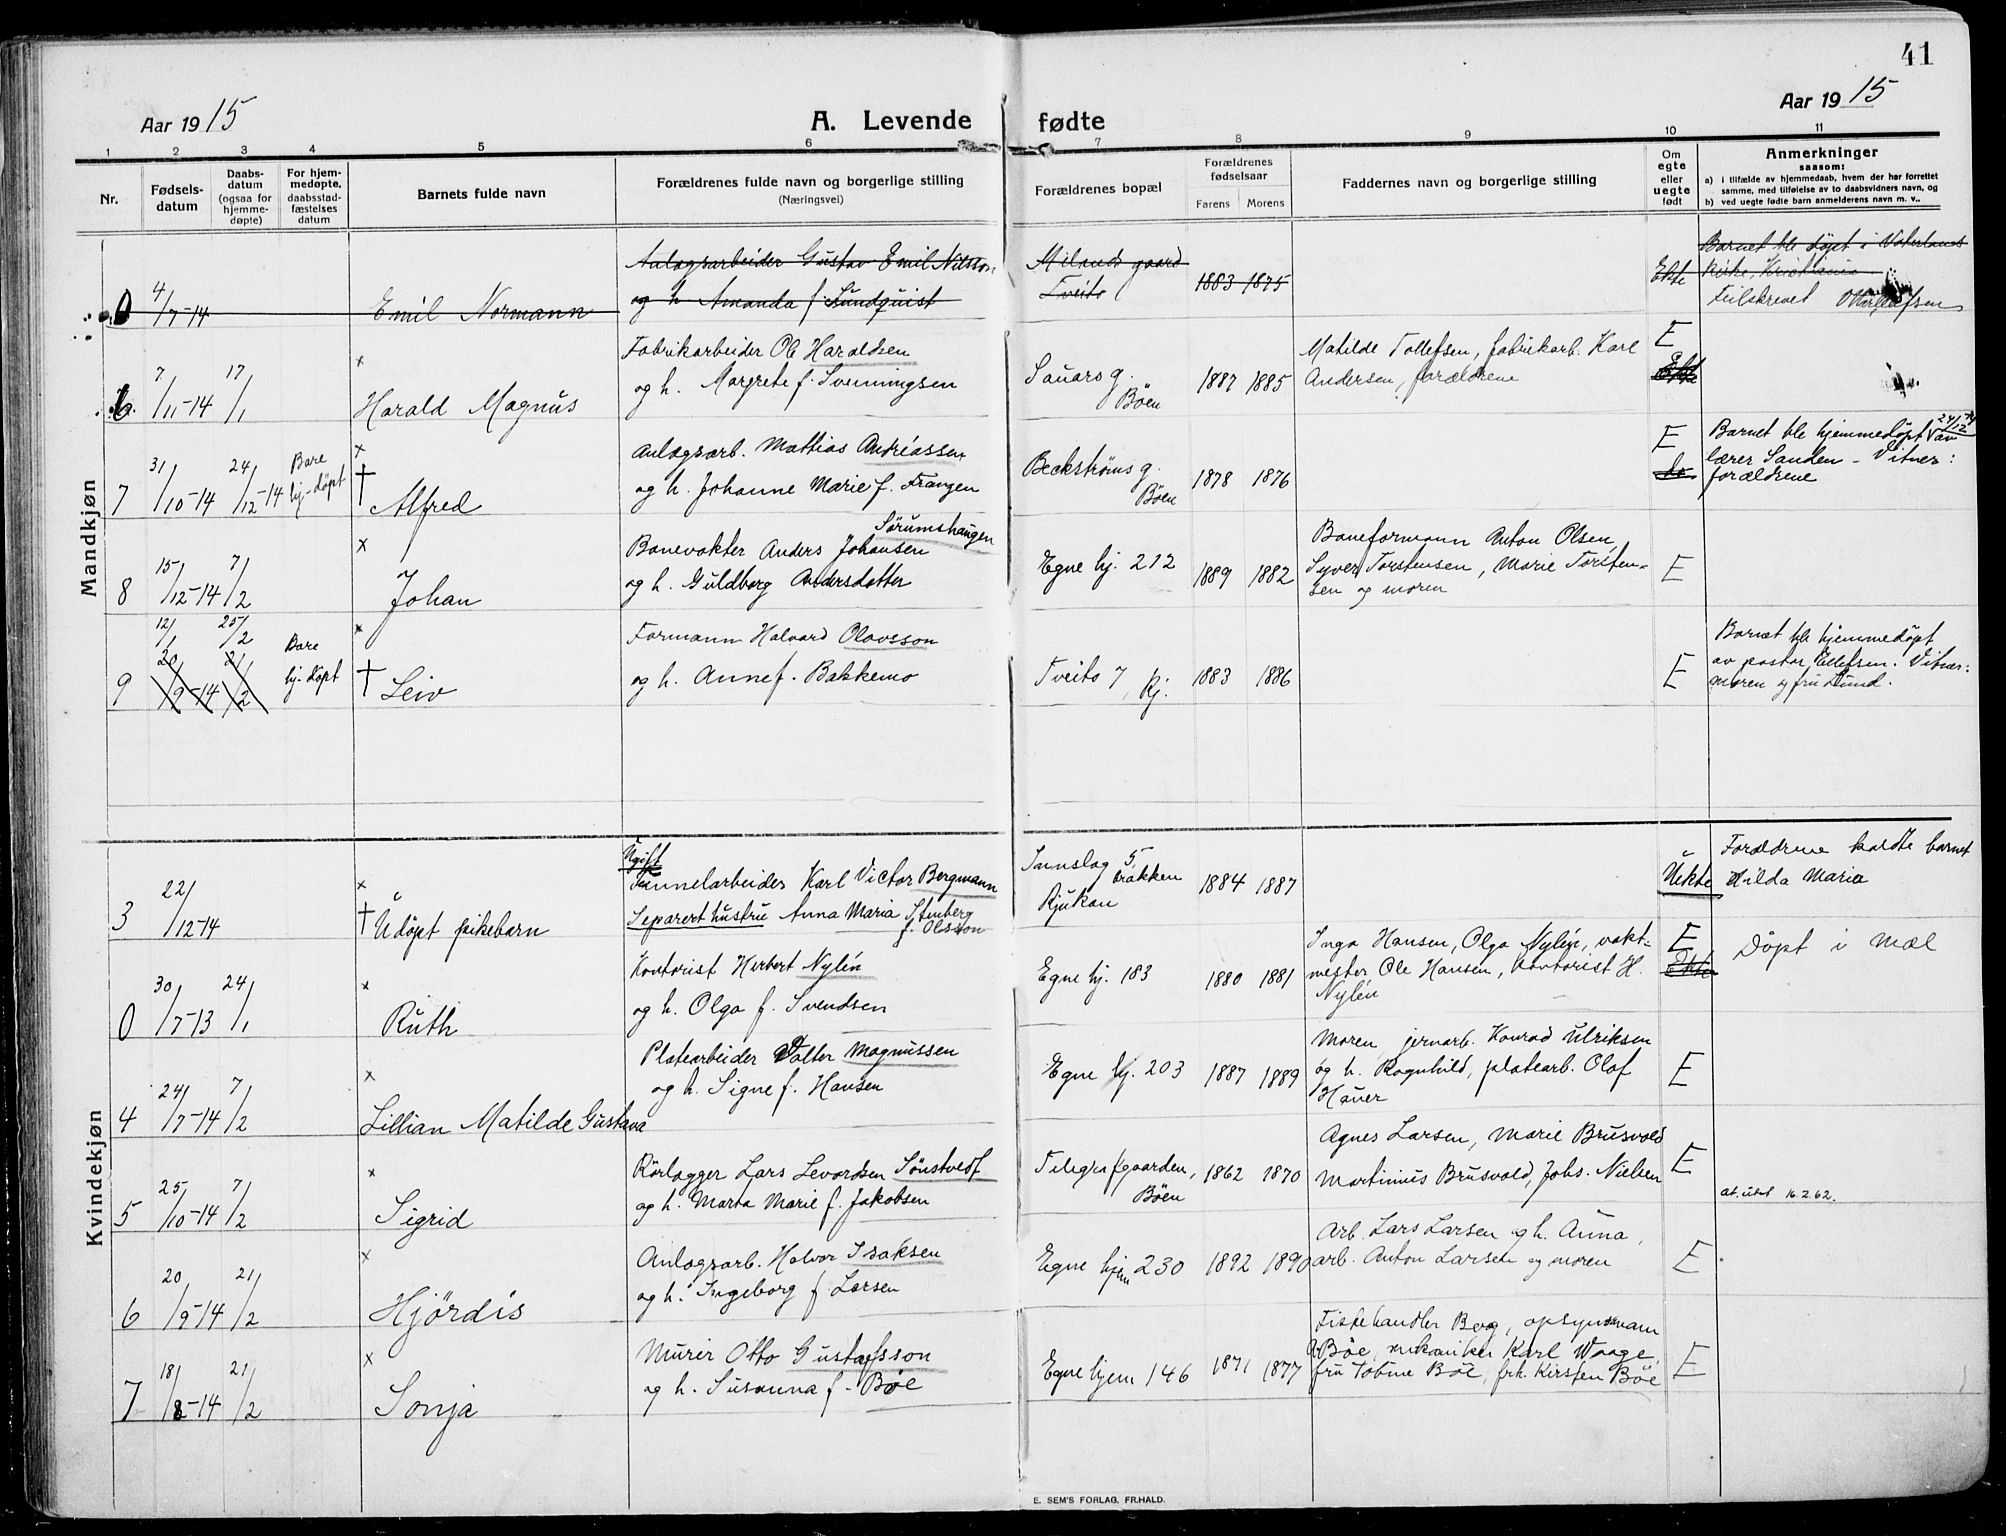 41
Aar 1915
A. Levende fødte
Aar 1915
1 2 3 4 5 6 7 8 9 10 11
Nr.
Fødsels-
datum
Daabs-
datum
(ogsaa for
hjemme-
døpte)
For hjem-
medøpte,
daabsstad-
fæstelses
datum
Barnets fulde navn
Forældrenes fulde navn og borgerlige stilling
(Næringsvei)
Forældrenes bopæl
Forældrenes
fødselsaar
Farens Morens
Faddernes navn og borgerlige stilling
Om
egte
eller
uegte
født
Anmerkninger
saasom:
a) i tilfælde av hjemmedaab, hvem der har forrettet
samme, med tilføielse av to daabsvidners navn, og
b) ved uegte fødte barn anmelderens navn m. v..
Mandkjøn
0 4/7-14 Emil Normann
Anlægsarbeider Gustav Emil Nilsson
og h. Amanda f. Lundquist
Milands gaard
Tveito
1883 1875
Ekte
Barnet ble døpt i Vaterlands
kirke, Kristiania
Feilskrevet
6 7/11-14 17/1 x Harald Magnus
Fabrikarbeider Ole Haraldsen
og h. Margrete f. Svenningsen
Sauars g.
Böen
1887 1885
Matilde Tollefsen, fabrikarb. Karl
Andersen, forældrene
E
Ekte
7 31/10-14 24/12-14 Bare
hj-døpt
x † Alfred
Anlægsarb. Mathias Andréassen
og h. Johanne Marie f. Frangen
Beckstrøms g.
Böen
1878 1876
E
do
Barnet ble hjemmedøpt 24/12-14 av
lærer Sanden - Vitner:
forældrene
8 15/12-14 7/2 x Johan
Sørumshaugen
Banevakter Anders Johansen
og h. Guldborg Andersdatter
Egne hj. 212
1889 1882
Baneformann Anton Olsen,
Syver Torstensen, Marie Torsten-
sen og moren
E
9 12/1 25/2
20/9-14 21/2
Bare
hj-døpt
x † Leiv
Formann Halvard Olavsson
og h. Anne f. Bakkemo
Tveito 7, Rj.
1883 1886
E
Barnet ble hjemmedøpt
av pastor Ellefsen. Vitner:
moren og fru Lund.
Kvindekjøn
3 22/12-14 x † Udøpt pikebarn
Ugift
Tunnelarbeider Karl Victor Bergmann
Separert hustru Anna Maria Stenberg
f. Olsson
Innslag 5,
brakken
Rjukan
1884 1887
Uekte
Forældrene kaldte barnet
Hilda Maria
0 30/7-13 24/1 x Ruth
Kontorist Herbert Nylén
og h. Olga f. Svendsen
Egne hj. 183
1880 1881
Inga Hansen, Olga Nylén, vakt-
mester Ole Hansen, kontorist H.
Nylén
E
Ekte
Døpt i Mæl
4 24/7-14 7/2 x Lillian Matilde Gustava
Platearbeider Valter Magnussen
og h. Signe f. Hansen
Egne hj. 203
1887 1889
Moren, jernarb. Konrad Ulriksen
og h. Ragnhild, platearb. Olaf
Hauer
E
5 25/10-14 7/2 x Sigrid
Rörlægger Lars Levordsen Sönstvedt
og h. Marta Marie f. Jakobsen
Telegrafgaarden,
Böen
1862 1870
Agnes Larsen, Marie Brusvold
Martinius Brusvold, Johs. Nielsen
E
at. utst 16.2.62.
6 20/9-14 21/2 x Hjördis
Anlægsarb. Halvor Isaksen
og h. Ingeborg f. Larsen
Egne hjem 230
1892 1890
Arb. Lars Larsen og h. Anna,
arb. Anton Larsen og moren
E
7 18/8-14 21/2 x Sonja
Murer Otto Gustafsson
og h. Susanna f. Böe
Egne hjem 146
1871 1877
Fiskehandler Berg, opsynsmann
Böe, mekaniker Karl Waage,
fru Tobine Böe, frk. Kirsten Böe
E
E. SEM'S FORLAG, FR.HALD.